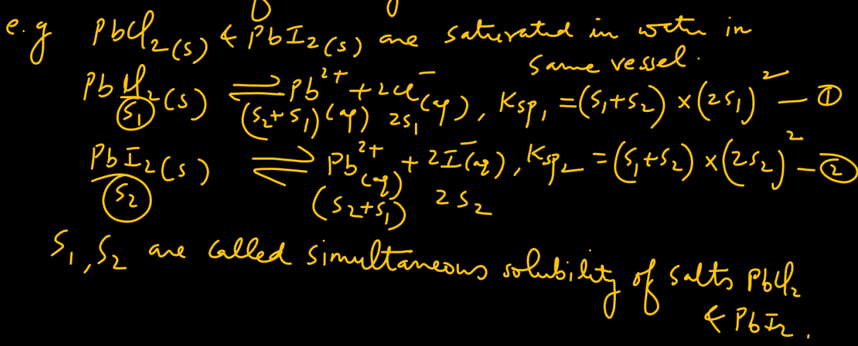 e.g PbCl₂(s) & PbI₂(s) are saturated in water in
same vessel.
PbCl₂(s) ⇌ Pb²⁺ + 2Cl⁻(aq), Ksp₁ = (S₁+S₂) × (2S₁)² — ①
S₁ (S₂+S₁)(aq) 2S₁
PbI₂(s) ⇌ Pb²⁺(aq) + 2I⁻(aq), Ksp₂ = (S₁+S₂) × (2S₂)² — ②
S₂ (S₂+S₁) 2S₂
S₁, S₂ are called simultaneous solubility of salts PbCl₂
& PbI₂.